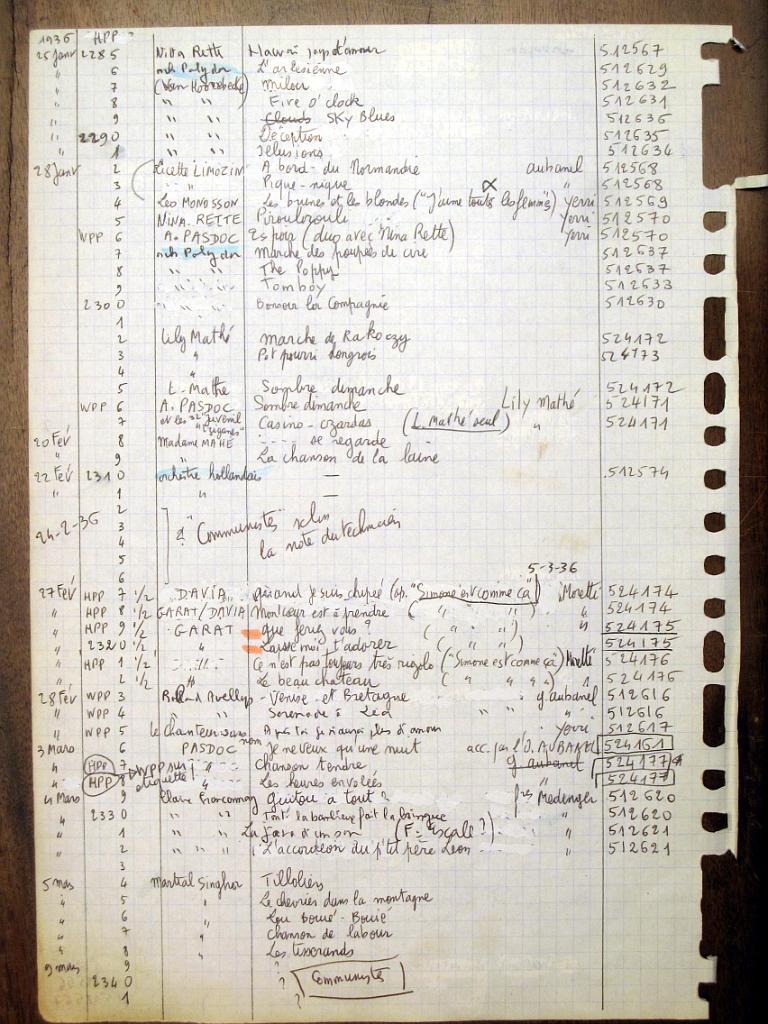 1936 HPP
25 Janv 2285 Nina Rette jour d'amour 512567
" 6 orch Polydor L'arlésienne 512629
" 7 (Van Hoorebeke) Milou 512632
" 8 " " Five O'clock 512631
" 9 " " Clouds Sky Blues 512636
" 2290 " " Déception 512635
" 1 " " Illusions 512634
28 Janv 2 Lucette LIMOZIN A bord du Normandie aubanel 512568
3 " Pique-nique " 512568
4 Leo MONOSSON Les brunes et les blondes ("J'aime toutes les femmes") Yerri 512569
5 NINA RETTE Piroulirouli Yerri 512570
WPP 6 A. PASDOC Espoir (duo avec Nina Rette) Yerri 512570
7 orch Polydor Marche des poupées de cire 512637
8 " " The Poppy 512637
9 " " Tomboy 512633
2300 " " Bonsoir la Compagnie 512630
1
2 Lily Mathé Marche de Rakoczy 524172
3 " Pot pourri hongrois 524173
4 "
5 L. Mathé Sombre dimanche 524172
WPP 6 A. PASDOC Sombre dimanche Lily Mathé 524171
7 et les 32 juvenil "tziganes" Casino - czardas (L. Mathé seul) " 524171
20 Fév 8 Madame MAHÉ ---- se regarde
" 9 La chanson de la laine
22 Fév 2310 orchestre hollandais — 512574
" 1 " —
2
24-2-36 3 & "Communistes" selon
4 la note du technicien
5
6 5-3-36
27 Fév HPP 7 1/2 DAVIA quand je suis chipée (op. "Simone est comme ça") Moretti 524174
" HPP 8 1/2 GARAT/DAVIA Mon coeur est à prendre ( " " ) " 524174
" HPP 9 1/2 GARAT que feriez vous ? ( " " ) " 524175
" 2320 1/2 " Laisse moi t'adorer ( " " ) 524175
" HPP 1 1/2 " Ce n'est pas toujours très rigolo ("Simone est comme ça") Moretti 524176
" 2 1/2 " Le beau chateau ( " " " " ) " 524176
28 Fév WPP 3 Roland Avellys - Venise et Bretagne g. aubanel 512616
" WPP 4 " " Serenade à Léa " " " 512616
" WPP 5 le Chanteur sans nom A quoi plus d'amour Yerri 512617
3 Mars 6 PASDOC Je ne veux qu'une nuit acc. par l'O. AUBANEL 524161
" HPP 7 WPP sur étiquette " Chanson tendre g. aubanel 524177
" HPP 8 " Les heures envolées " 524177
4 Mars 9 Claire Franconnay Guitou a tout ? frès Medinger 512620
" 2330 " " Tout la banlieue fait la bringue " 512620
" 1 " " La java d'un son (F= escale ?) " 512621
" 2 " " " " L'accordéon du p'tit père Léon " 512621
3
5 mars 4 Martial Singher Tilloliers
" 5 " Le chevrier dans la montagne
" 6 " Lou Boué - Bouié
" 7 " Chanson de labour
" 8 " Les tisserands
9 mars 9 ?
2340 ? Communistes
1 ?